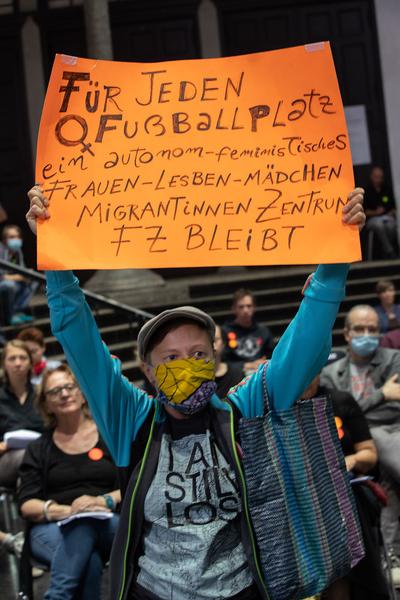 FÜR JEDEN
FUßBALLPLATZ
ein autonom-feministisches
FRAUEN-LESBEN-MÄDCHEN
MIGRANTINNEN ZENTRUM
FZ BLEIBT
I AM
STILL
LOS